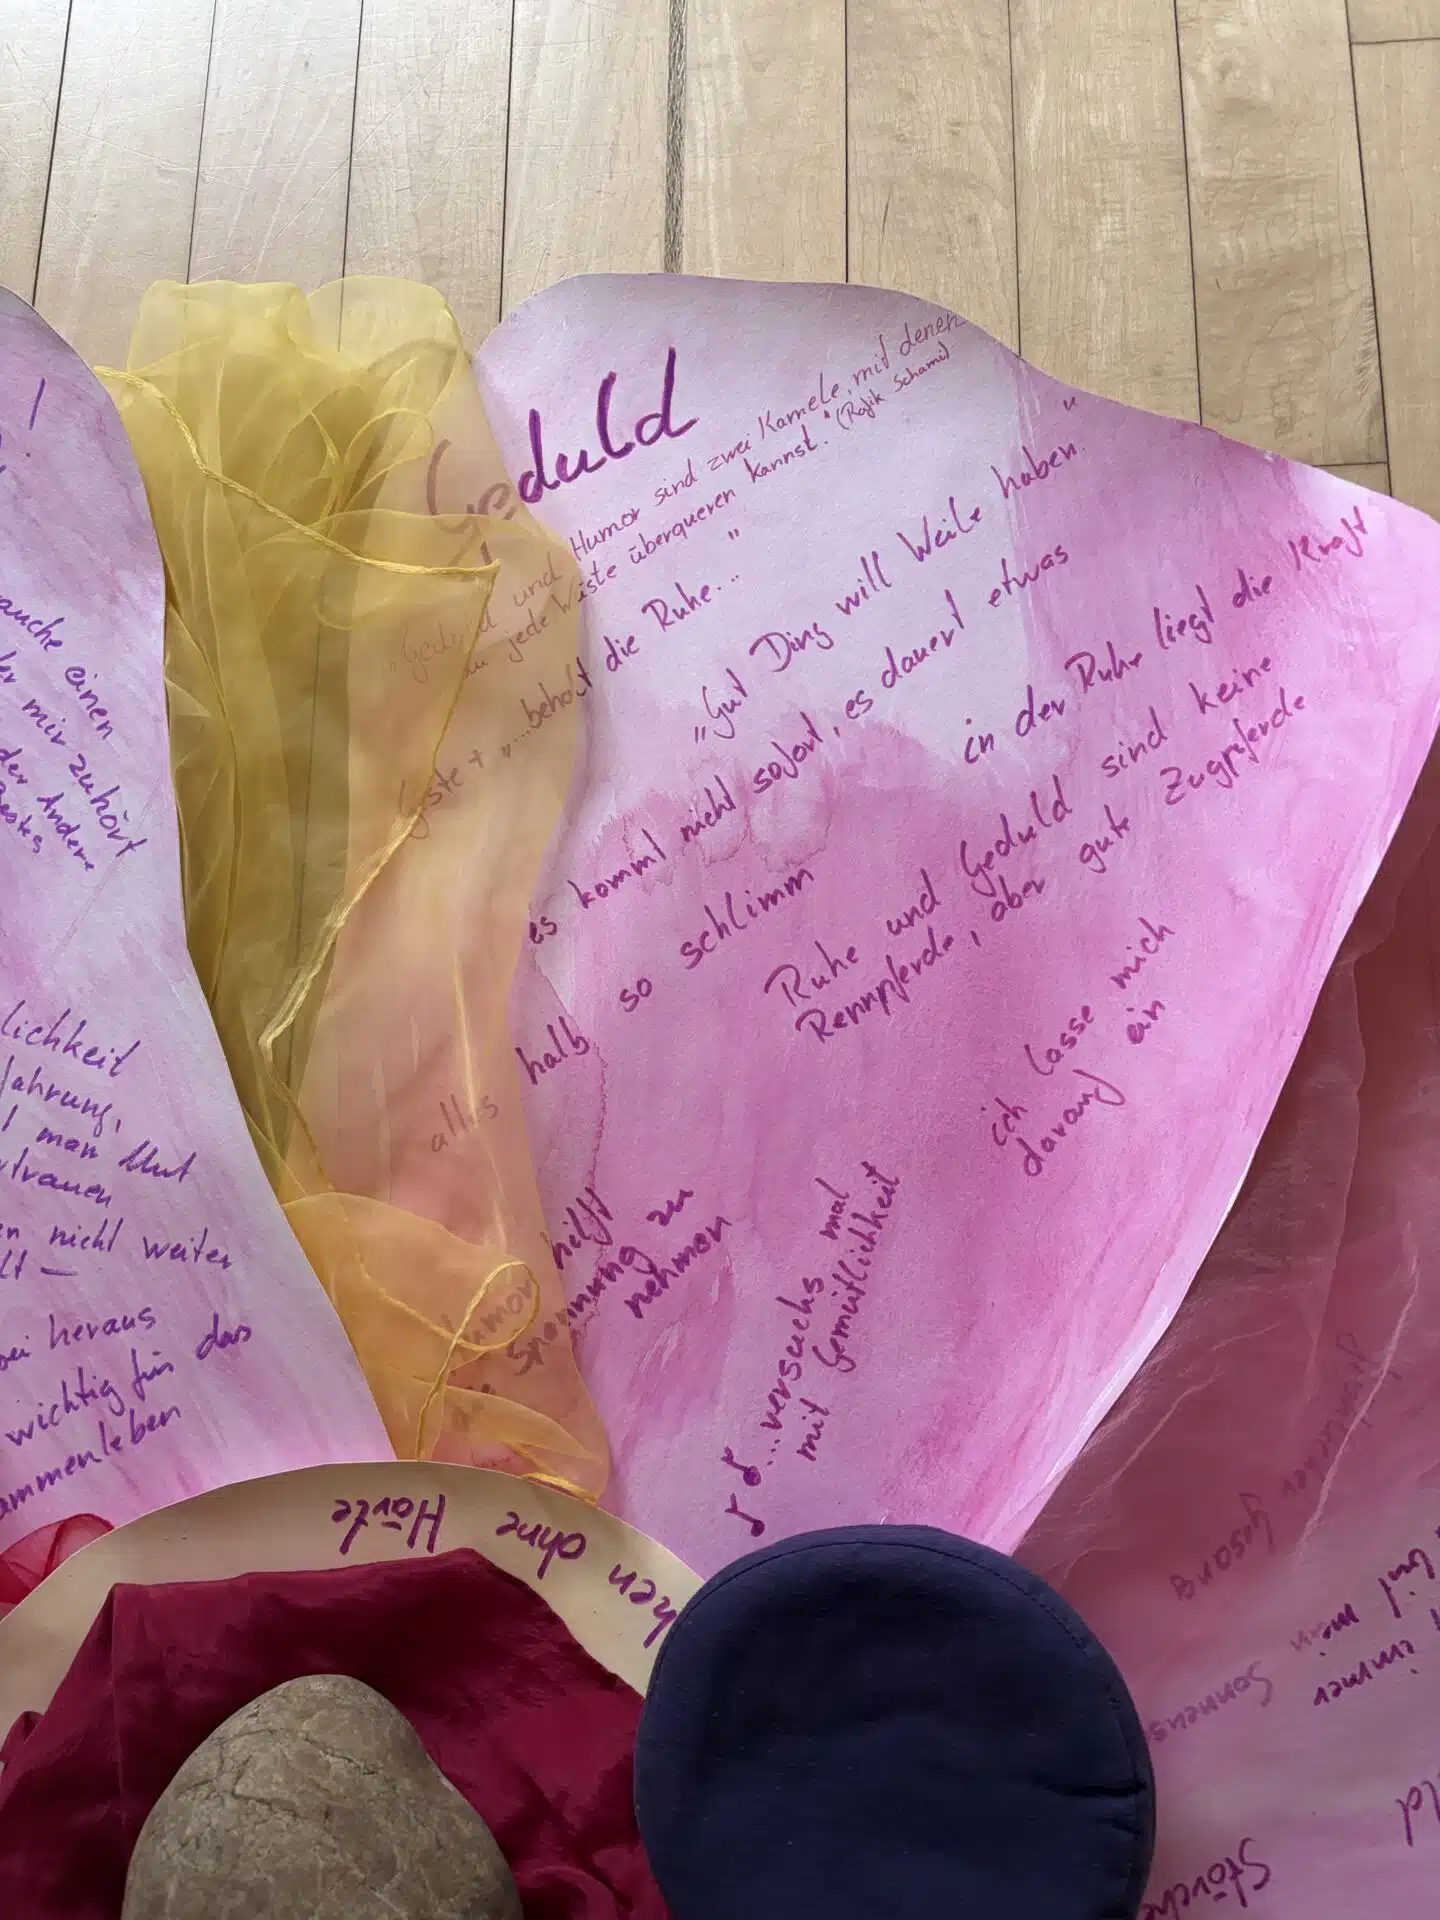 Geduld
„Geduld und Humor sind zwei Kamele, mit denen
du jede Wüste überqueren kannst." (Rafik Schami)
Geste + „...behalt die Ruhe..."
„Gut Ding will Weile haben."
es kommt nicht sofort, es dauert etwas
in der Ruhe liegt die Kraft
alles halb so schlimm
Ruhe und Geduld sind keine
Rennpferde, aber gute Zugpferde
ich lasse mich
darauf ein
Humor hilft
die Spannung zu
nehmen
♪♪...versuchs mal
mit Gemütlichkeit
!
einen
mir zuhört
der Andere
lichkeit
fahrung,
man Mut
rtrauen
en nicht weiter
lt –
bei heraus
wichtig für das
ammenleben
hen ohne Härte
gesong
mein Sonnens
immer
ld